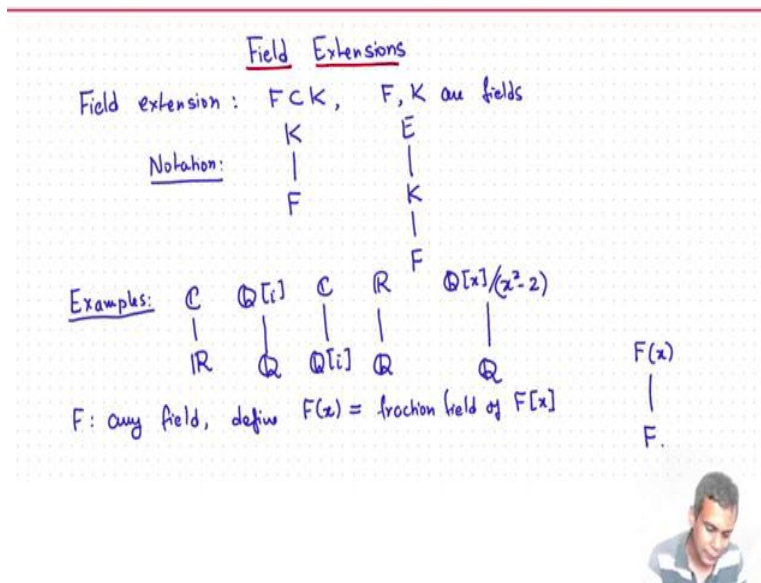 Field Extensions
Field extension: F ⊂ K, F, K are fields
Notation:
K
|
F
E
|
K
|
F
Examples:
ℂ
|
ℝ
ℚ[i]
|
ℚ
ℂ
|
ℚ[i]
ℝ
|
ℚ
ℚ[x]/(x²-2)
|
ℚ
F: any field, define F(x) = fraction field of F[x]
F(x)
|
F.